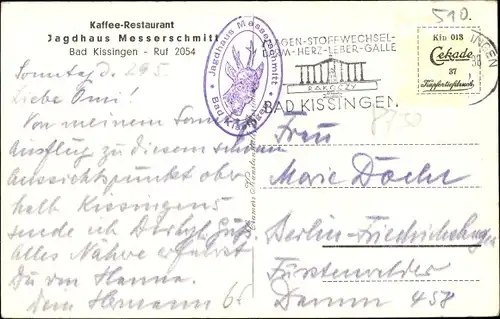 Kaffee-Restaurant
Jagdhaus Messerschmitt
Bad Kissingen - Ruf 2054
Sonntag d. 29.5.
Liebe Omi!
Von meinem Sonn
Ausflug zu diesem schönen
Aussichtspunkt ober
halb Kissingens
sende ich Dir
Alles Nähere erfährst
Du von Hanna.
Dein Hermann
Jagdhaus Messerschmitt
Bad Kissingen
MAGEN-STOFFWECHSEL-
DARM-HERZ-LEBER-GALLE
RAKOCZY
BAD KISSINGEN
510.
Kin 013
Cekade
37
Kupfertiefdruck
INGEN
Frau
Marie
Berlin-Friedrichshagen
Fürstenwalder
Damm 458